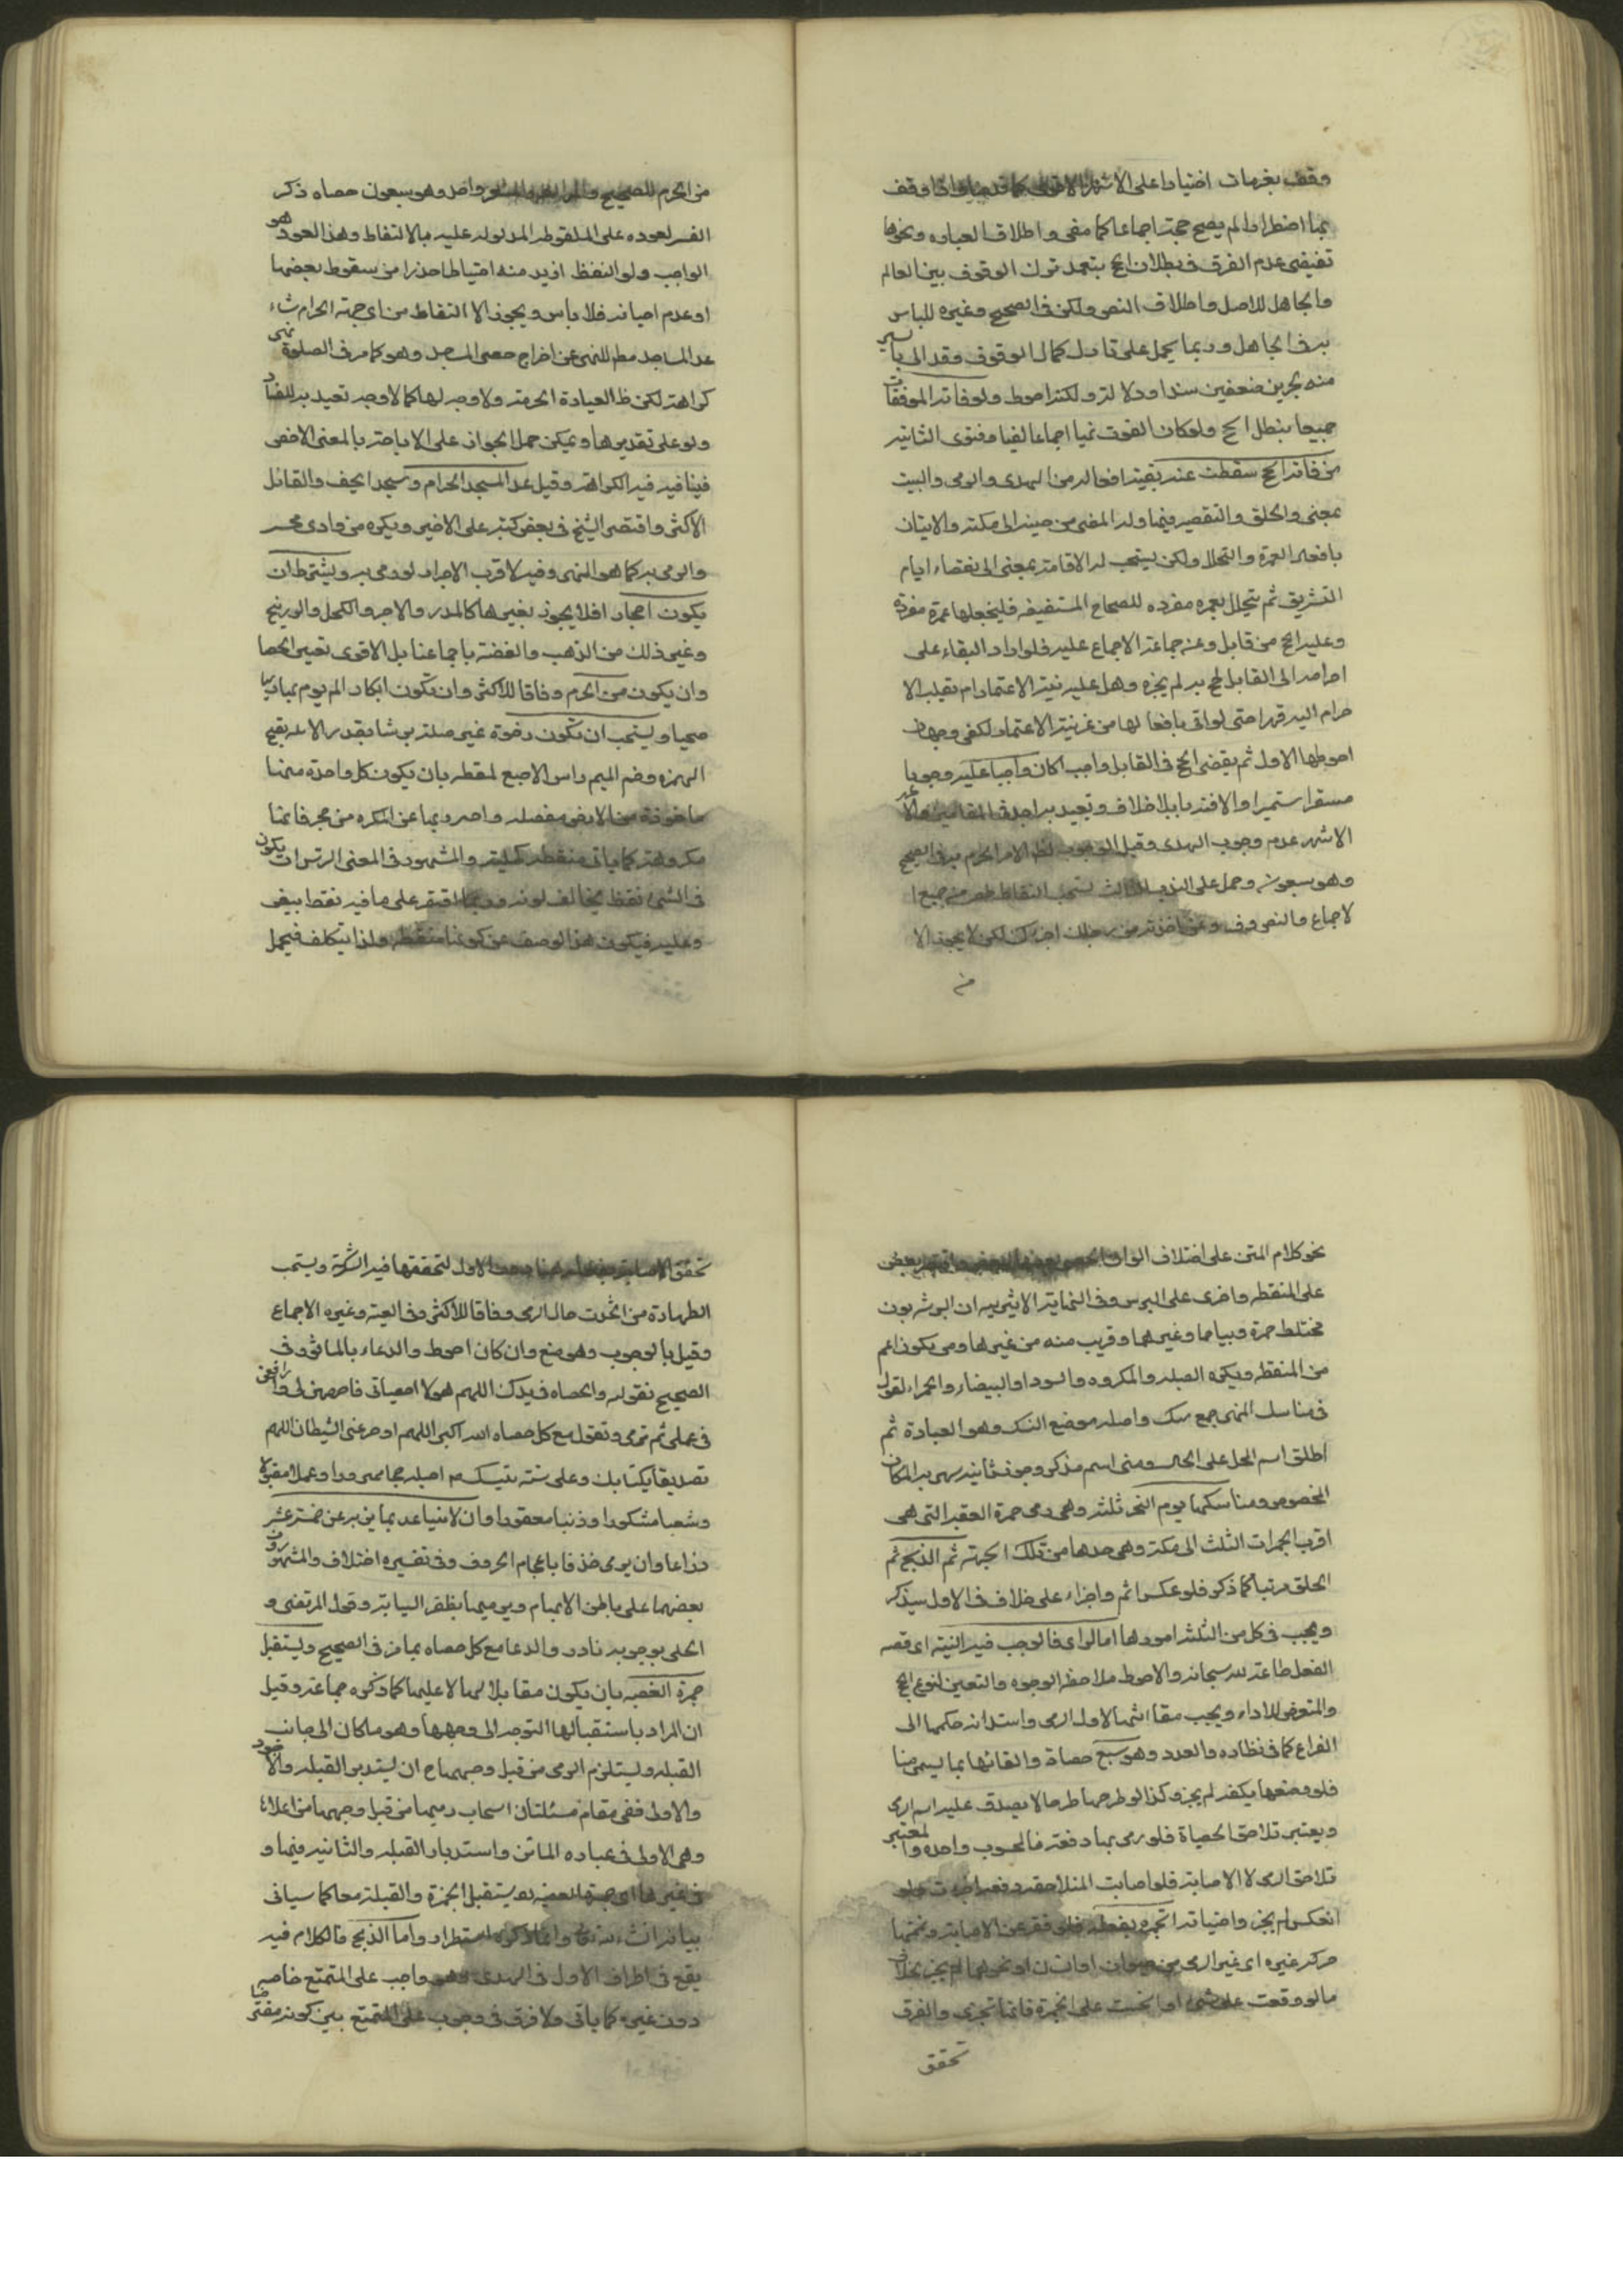 وقف بعرفات اختيارا على الاشهر الاقوى كما قد مر ولو وقف
بها اضطرارا لم يصح حجه اجماعا كما مضى واطلاق العباره ونحوها
تقيضى عدم الفرق فى بطلان الحج بتعمد ترك الوقوف بين العالم
والجاهل للاصل واطلاق النص ولكن فى الصحيح وغيره للباس
به فى الجاهل وربما يحمل على تارك كمال الوقوف وقد الى باسير
منه بخرين ضعفين سندا ودلالة ولكنه احوط ولو فاته الموقفان
جميعا بطل الحج ولو كان الفوت نميا اجماعا لفيا وفتوى الثانيه
من فاته الحج سقطت عنه بقية افعاله من الهدى والرمى والبيت
بمنى والحلق والتقصير فيها وله المضى من حينه الى مكه والاتيان
بافعال العمرة والتحلل ولكن يستحب له الاقامة بمنى الى انقضاء ايام
التشريق ثم يتحلل بعمره مفرده للصحاح المستفيضه فليجعلها عمرة مفرده
وعليه الحج من قابل وعن جماعة الاجماع عليه فلو اراد البقاء على
احرامه الى القابل ليحج به لم يجزه وهل عليه نية الاعتمار ام يقلب الا
حرام اليه قهرا حتى لو اتى بافعالها من غير نية الاعتمار لكفى وجهان
احوطها الاول ثم يقضى الحج فى القابل واجبا كان واجبا عليه وجوبا
مستقرا مستمرا والا فندبا بلا خلاف وتعيد به اجد فى المقامين والا
الاشهر عدم وجوب الهدى وقيل الوجوب لظ الامر الحرم به فى الصحيح
وهو سبعون وحمل على الندب الثالث يستحب التقاط الحصى من جمع ا
لاجماع والنص وفى وان اخذته من رحلك اجزءك لكن لا يجوز الا
من
من الحرم للصحيح واحد وهو سبعون حصاه ذكر
الضمير لعوده على الملقوط المدلول عليه بالالتقاط وهذا العود هو
الواجب ولو التقط ازيد منه احتياطا حذرا من سقوط بعضها
او عدم اصابته فلا باس ويجوز الا التقاط من اى جهة الحرام شاء
عدا المساجد مطم للنهى عن اخراج حصى المساجد وهو كما مر فى الصلوة نهى
كراهته لكن ظ العبادة الحرمة ولا وجه لها كما لا وجه تعيد به للفساد
ولو على تقديرها ويمكن حمل الجواز على الاباحة بالمعنى الاخص
فينافيه فيه الكراهة وقيل عدا المسجد الحرام ومسجد الخيف والقائل
الاكثر واقتصر الشيخ فى بعض كتبه على الاخير ويكره من وادى محسر
والرمى به كما هو النهى وفيه لا قرب الاجزاء لو رمى به ويشترط ان
يكون احجارا فلا يجوز بغيرها كالمدر والاجر والكحل والورنيخ
وغير ذلك من الذهب والفضة باجماعنا بل الاقوى تعين الحصا
وان يكون من الحرم وفاقا للاكثر وان تكون ابكارا لم يرم بها رميا
صحيا ويستحب ان تكون رخوة غير صلبة برشا بقدر الانملة بفتح
الهمزه وضم الميم راس الاصبع لمقطه بان يكون كل واحدة منها
ماخوذة من الارض منفصله واحترز بها عن المكسره من حجر فانها
مكروهة كما ياتى منقطه كحليه والمشهور فى المعنى البرش ان يكون
فى الشئ نقط يخالف لونه وربما اقتصر على ما فيه نقط ابيض
وعليه فيكون هذا الوصف عن كونها منقطه ولذا يتكلف فيحمل
نحو كلام المتن على اختلاف الوان الحصى بعضها لبعض واقتصر بعض
على المنقطه واخرى على البرس وفى النهاية الاثيريه ان البرشه لون
مختلط حمرة وبياضا وغيرهما وقريب منه من غيرها ومن يكون اعم
من المنقطه ويكره الصلبه والمكروه والسودا والبيضاء والحمراء لقول
فى مناسك المنى جمع نسك واصله موضع النسك وهو العبادة ثم
اطلق اسم المحل على الحال ومنى اسم مذكر وجوز تانيه سمى به المكان
المخصوص ومناسكها يوم النحر ثلثه وهى رمى جمرة العقبه التى هى
اقرب الجمرات الثلث الى مكه وهى حدها من تلك الجهة ثم الذبح ثم
الحلق مرتبا كما ذكر فلو عكس اثم واجزاء على خلاف فى الاول سيذكر
ويجب فى كل من الثلثه امورها اما الرمى فالواجب فيه النيه اى قصد
الفعل طاعة لله سبحانه والاحوط ملاحظة الوجوه والتعين لنوع الحج
والمتعرض للاداء ويجب مقارنتها لاول الرمى واستدامة حكمها الى
الفراغ كما فى نظائره والعدد وهو سبع حصاة والقائها بما يسمى رميا
فلو وضعها بكفه لم يجز وكذا لو طرحها طرحا لا يصدق عليه اسم الرمى
ويعتبر تلاحق الحصياة فلو رمى بها دفعة فالمحسوب واحده والمعتبر
تلاحق الرمى لا الاصابة فلو اصابت المتلاحقه دفعه اجزات ولو
انعكس لم يجز واصابة الجمره بفعله فلو قصر عن الاصابه وتممها
حركة غيره اى غير الرمى من حيوان او انسان او نحوهما لم يجز بخلاف
ما لو وقعت على شئ او انحدرت على الجمرة فانها تجزى والفرق
تحقق
تحقق الاصابة بفعله هنا دون الاول لتحققها فيه الشركة ويستحب
الطهارة من الحدث حال الرمى وفاقا للاكثر وفى الغنيه وغيره الاجماع
وقيل بالوجوب وهو ضع وان كان احوط والدعاء بالماثور وفى
الصحيح تقول والحصاه فى يدك اللهم هولاء حصياتى فاحصهن لى وارفعهن
فى عملى ثم ترمى وتقول مع كل حصاه الله اكبر اللهم ادحر عنى الشيطان اللهم
تصديقا بكتابك وعلى سنة نبيك م اجعله حجا مبرورا وعملا مقبولا
وسعيا مشكورا وذنبا مغفورا وان لا يتباعد بما يزيد عن خمسة عشر
ذراعا وان يرمى خذفا باعجام الحروف وفى تفسيره اختلاف والمشهور ان
يضعها على باطن الابهام ويرميها بظفر السبابه وقول المرتضى و
الحلى بوجوبه نادر والدعا مع كل حصاه بما مر فى الصحيح ويستقبل
جمرة العقبه بان يكون مقابلا لها لا عليها كما ذكره جماعة وقيل
ان المراد باستقبالها التوجه الى وجهها وهو ما كان الى جانب
القبله ويستلزم الرمى من قبل وجهها ح ان يستدبر القبله والا
والاولى ففى مقام مسئلتان استحاب رميها من قبل وجهها من اعلاها
وهى الاولى فى عباره الماتن واستدبار القبله والثانيه فيها و
فى غيرها اى جمرة العقبه يستقبل الجمرة والقبلة معا كما سياتى
بيانه انشاء الله تع وانما ذكره استطرادا واما الذبح فالكلام فيه
يقع فى اطراف الاول فى الهدى وهو واجب على المتمتع خاصه
دون غيره كما ياتى ولا فرق فى وجوبه على المتمتع بين كونه مفترضا